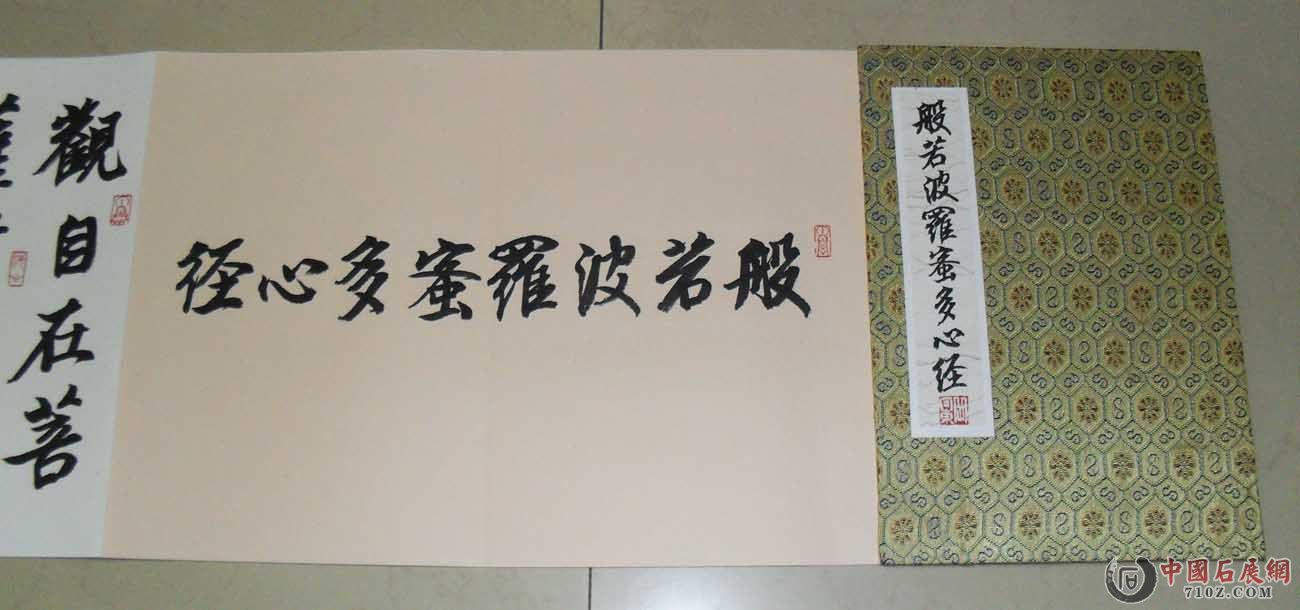 般若波羅蜜多心经
般若波羅蜜多心径
觀自在菩
薩
中國石展網
710Z.COM